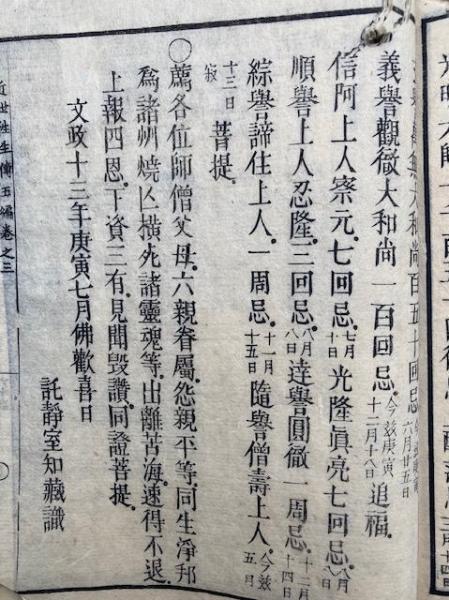 大和尚百五十回忌六月廿五日
義譽觀徹大和尚一百回忌今玆庚寅十二月十八日追福
信阿上人察元七回忌七月十日光隆眞亮七回忌八月
順譽上人忍隆三回忌八月八日達譽圓徹一周忌十二月十四日
綜譽諦住上人一周忌十一月十五日隨譽僧壽上人今玆五月
十三日寂菩提
〇薦各位師僧父母六親眷屬怨親平等同生淨邦
爲諸州燒亾橫死諸靈魂等出離苦海速得不退
上報四恩下資三有見聞毀讚同證菩提
文政十三年庚寅七月佛歡喜日
託靜室知藏識
近世往生傳五編卷之三